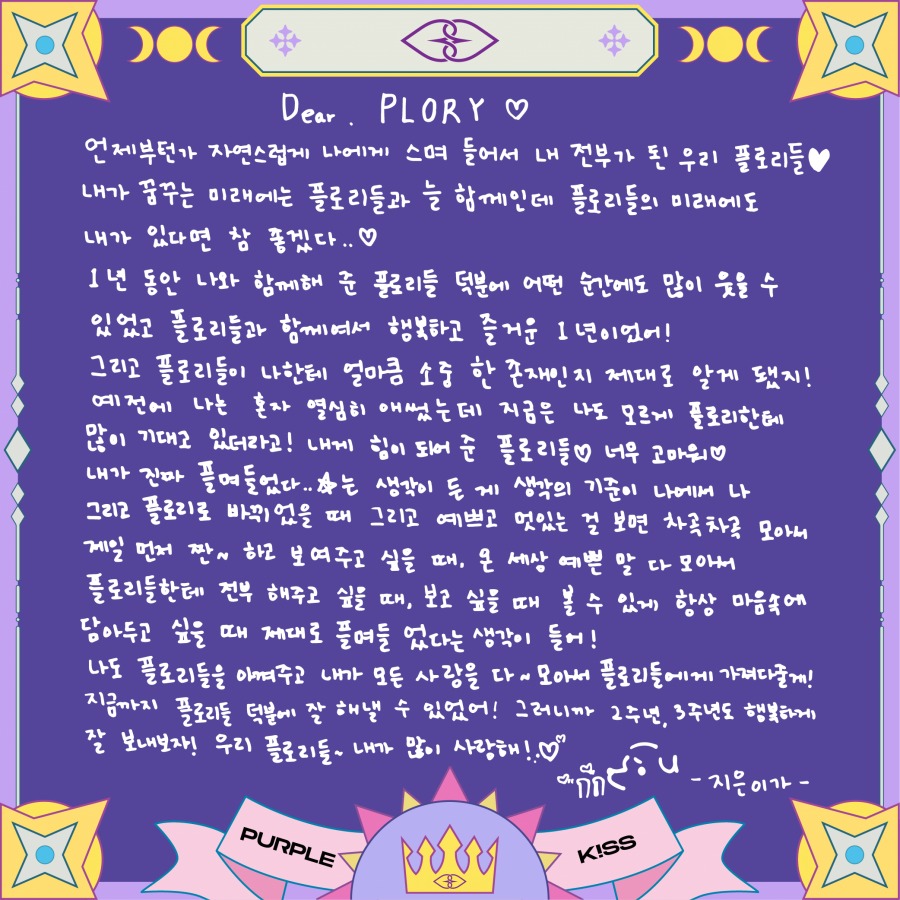 Dear. PLORY ♡
언제부턴가 자연스럽게 나에게 스며 들어서 내 전부가 된 우리 플로리들♥
내가 꿈꾸는 미래에는 플로리들과 늘 함께인데 플로리들의 미래에도
내가 있다면 참 좋겠다..♡
1년 동안 나와 함께해 준 플로리들 덕분에 어떤 순간에도 많이 웃을 수
있었고 플로리들과 함께여서 행복하고 즐거운 1년이었어!
그리고 플로리들이 나한테 얼마큼 소중 한 존재인지 제대로 알게 됐지!
예전에 나는 혼자 열심히 애썼는데 지금은 나도 모르게 플로리한테
많이 기대고 있더라고! 내게 힘이 되어 준 플로리들♡ 너무 고마워♡
내가 진짜 플며들었다..☆는 생각이 든 게 생각의 기준이 나에서 나
그리고 플로리로 바뀌었을 때 그리고 예쁘고 멋있는 걸 보면 차곡차곡 모아서
제일 먼저 짠~ 하고 보여주고 싶을 때, 온 세상 예쁜 말 다 모아서
플로리들한테 전부 해주고 싶을 때, 보고 싶을 때 볼 수 있게 항상 마음속에
담아두고 싶을 때 제대로 플며들 었다는 생각이 들어!
나도 플로리들을 아껴주고 내가 모든 사랑을 다~모아서 플로리들에게 가져다줄게!
지금까지 플로리들 덕분에 잘 해낼 수 있었어! 그러니까 2주년, 3주년도 행복하게
잘 보내보자! 우리 플로리들~ 내가 많이 사랑해!♡
- 지은이가 -
PURPLE
K!SS